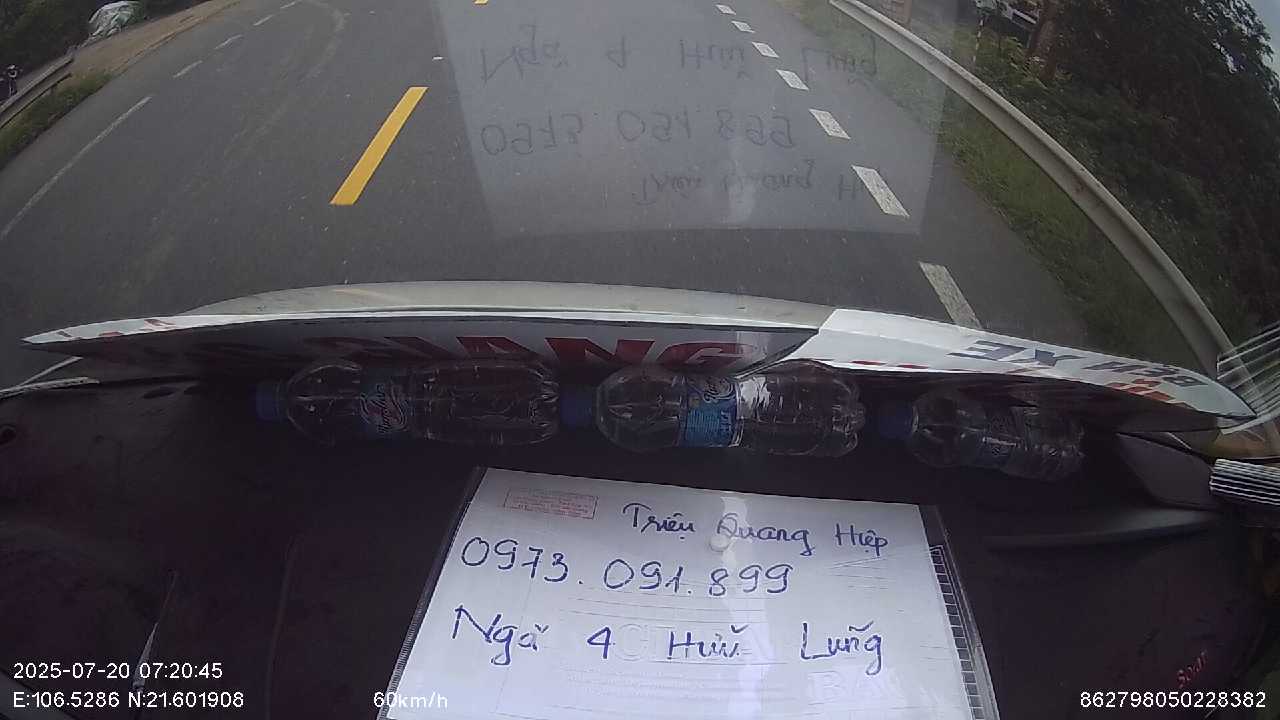 GIANG
BẾN XE
Triệu Quang Hiệp
0973.091.899
Ngã 4 Hữu Lũng
2025-07-20 07:20:45
E:106.5286 N:21.601908
60km/h
862798050228382